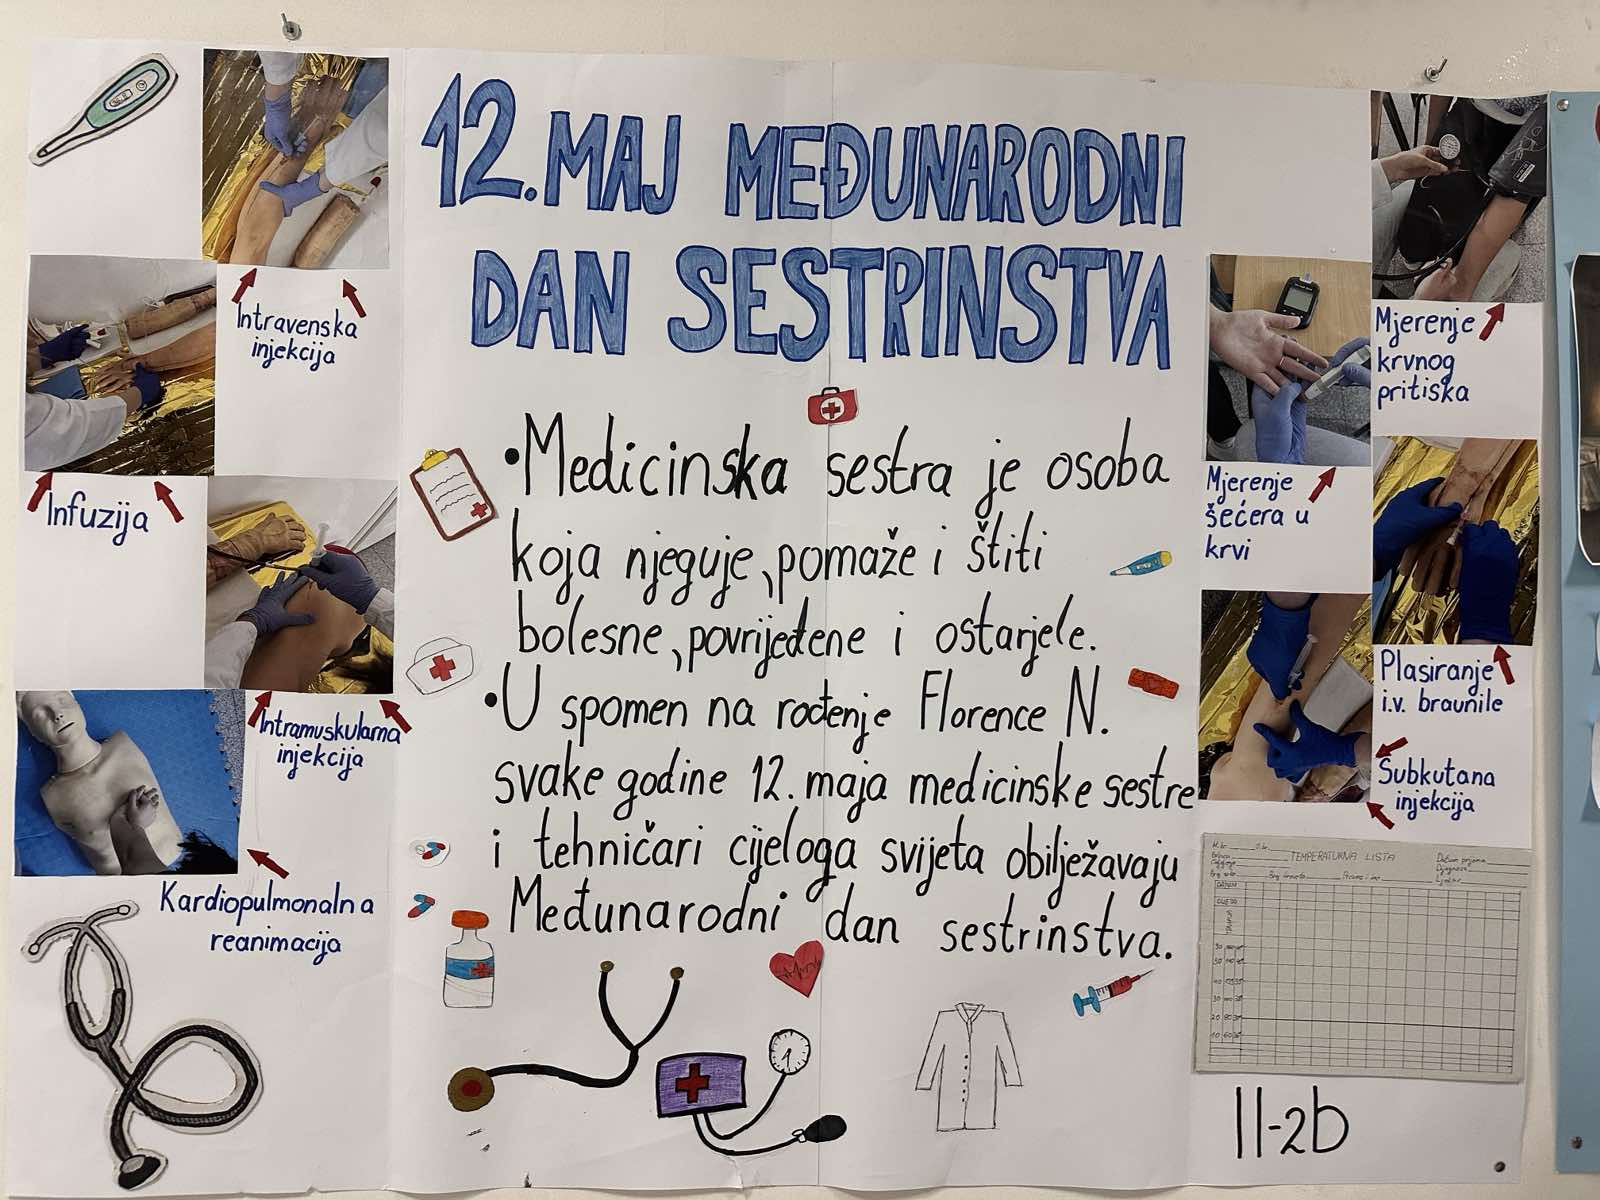 12. MAJ MEĐUNARODNI
DAN SESTRINSTVA
•Medicinska sestra je osoba
koja njeguje, pomaže i štiti
bolesne, povrijeđene i ostarjele.
•U spomen na rođenje Florence N.
svake godine 12. maja medicinske sestre
i tehničari cijeloga svijeta obilježavaju
Međunarodni dan sestrinstva.
Intravenska
injekcija
Infuzija
Intramuskularna
injekcija
Kardiopulmonalna
reanimacija
Mjerenje
krvnog
pritiska
Mjerenje
šećera u
krvi
Plasiranje
i.v. braunile
Subkutana
injekcija
TEMPERATURNA LISTA
Datum prijema
II-2b